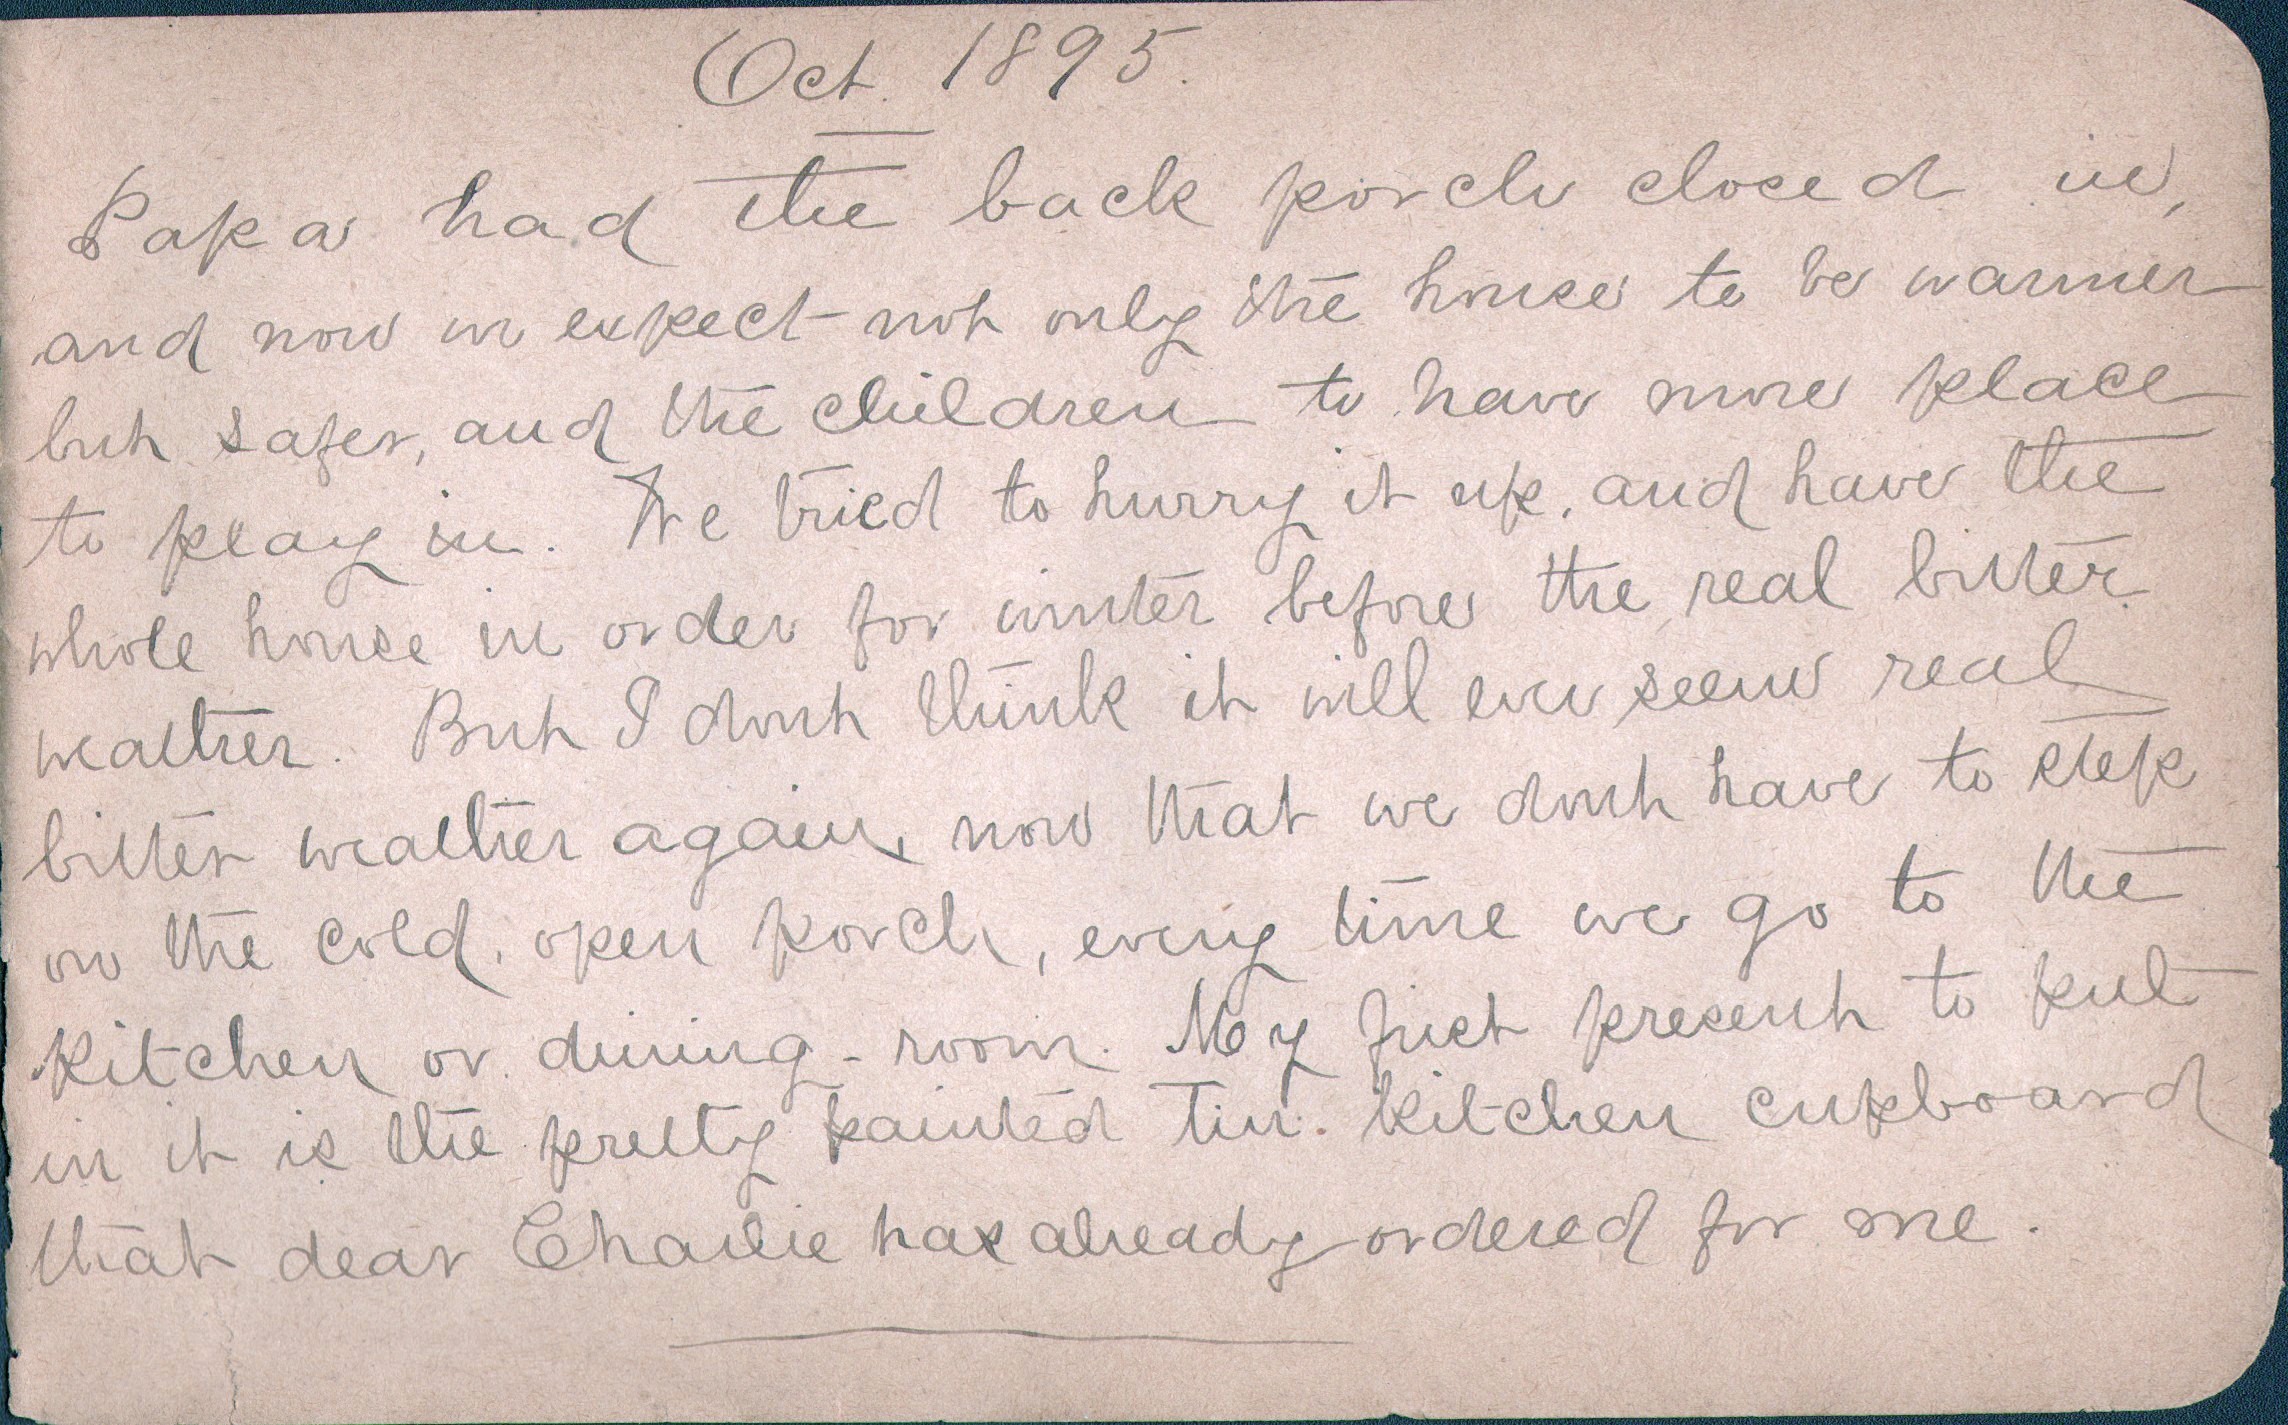 Oct. 1895.
Papa had the back porch closed in,
and now we expect not only the house to be warmer
but safer, and the children to have more place
to play in. We tried to hurry it up, and have the
whole house in order for winter before the real bitter
weather. But I dont think it will ever seem real
bitter weather again, now that we dont have to step
on the cold, open porch, every time we go to the
kitchen or dining-room. My first present to put
in it is the pretty painted tin kitchen cupboard
that dear Charlie has already ordered for me.